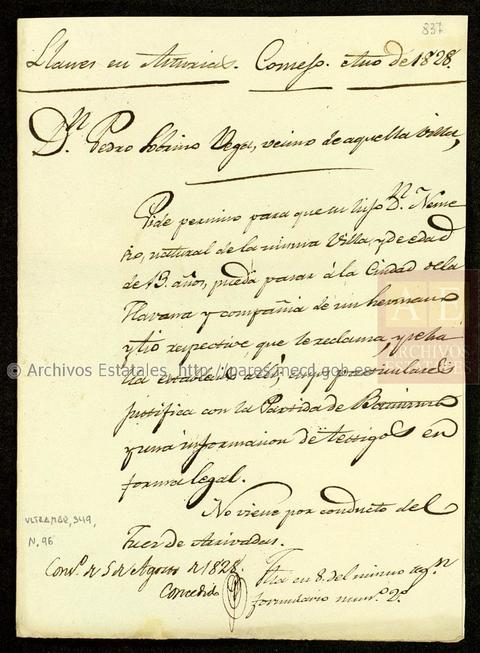 837
Llanes en Asturias. Consejo. Año de 1828.
Dn. Pedro Sobrino Vega, vecino de aquella Villa,
Pide permiso para que su hijo Dn. Neme
sio, natural de la misma Villa, y de edad
de 13. años, pueda pasar á la Ciudad de la
Havana y compañia de un hermano
y tio respective que le reclama, y se ha
lla establecido allí; cuyos particulares
justifica con la Partida de Bautismo
y una informacion de testigos en
forma legal.
No viene por conducto del
Juez de Arrivadas.
© Archivos Estatales, http://pares.mecd.gob.es
AE
ARCHIVOS
ESTATALES
ULTRAMAR, 349,
N. 96
Cons.º de 5 de Agosto de 1828.
Concedido
Fha en 8. del mismo
formulario num.º 2.º